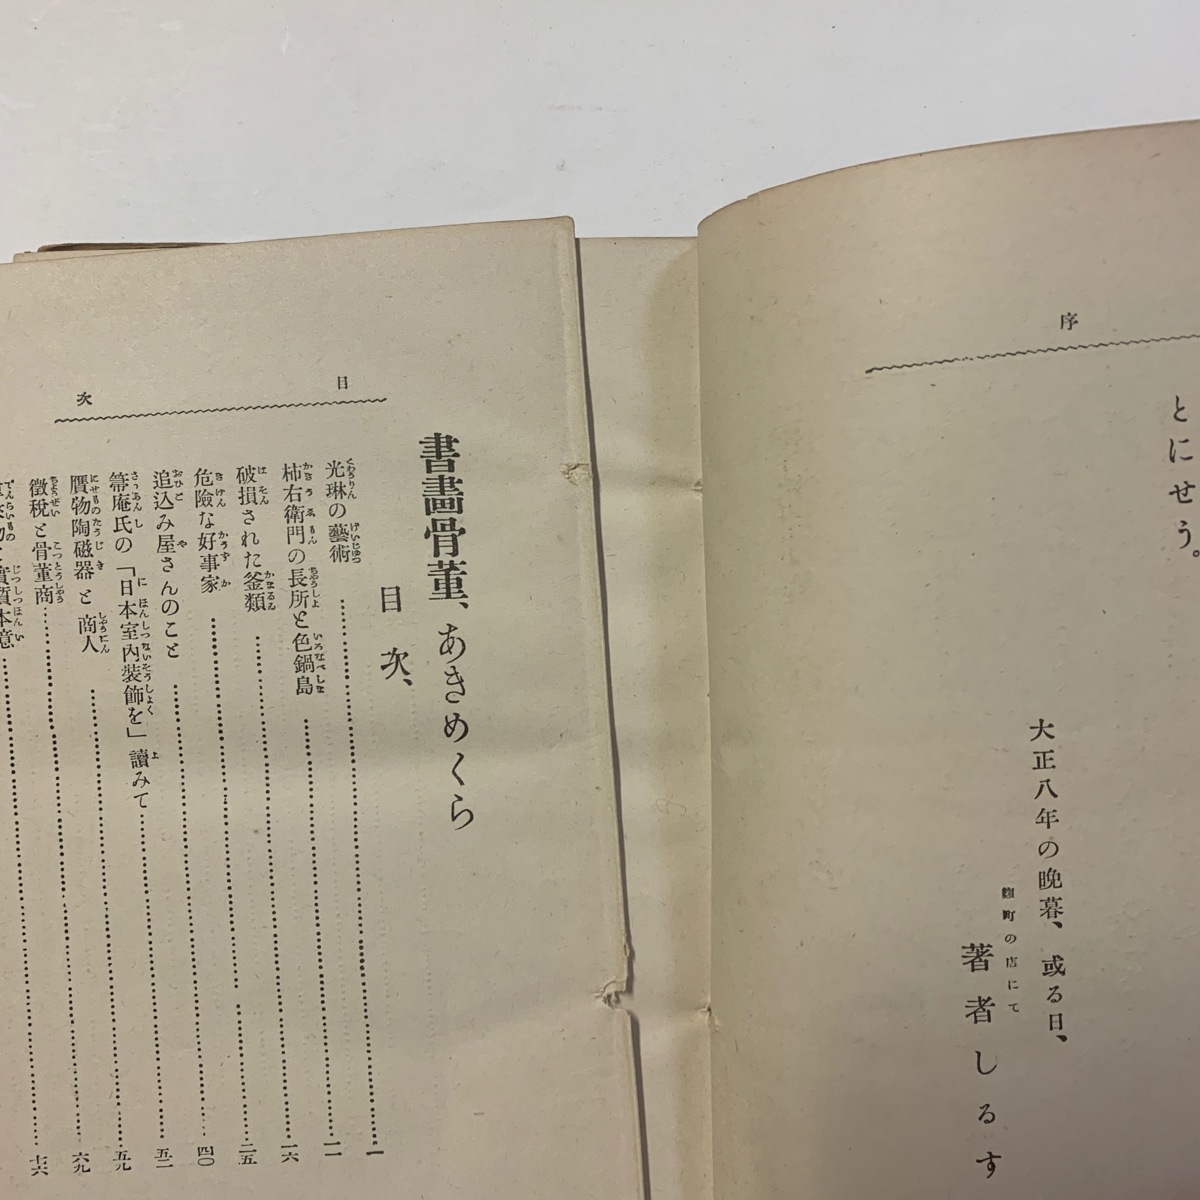 序
とにせう。
大正八年の晩暮、或る日、
麴町の店にて
著者しるす
目次
書畵骨董、あきめくら
目次、
光琳の藝術……一
柿右衛門の長所と色鍋島……一一
破損された釜類……一六
危險な好事家……二五
追込み屋さんのこと……四〇
箒庵氏の「日本室內装飾を」讀みて……五二
贋物陶磁器と商人……五九
徴税と骨董商……六九
物と實質本意……七六